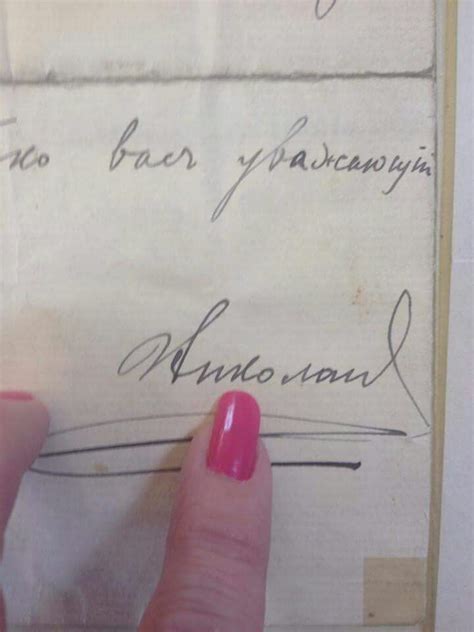 ко васъ уважающій
Николай